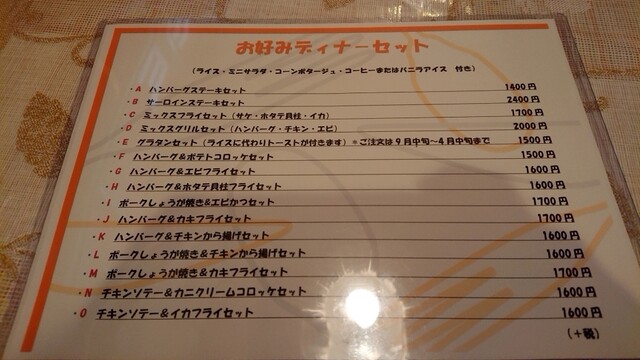 お好みディナーセット
(ライス・ミニサラダ・コーンポタージュ・コーヒーまたはバニラアイス 付き)
・A ハンバーグステーキセット 1400円
・B サーロインステーキセット 2400円
・C ミックスフライセット(サケ・ホタテ貝柱・イカ) 1700円
・D ミックスグリルセット(ハンバーグ・チキン・エビ) 2000円
・E グラタンセット(ライスに代わりトーストが付きます)*ご注文は9月中旬~4月中旬まで 1500円
・F ハンバーグ&ポテトコロッケセット 1500円
・G ハンバーグ&エビフライセット 1600円
・H ハンバーグ&ホタテ貝柱フライセット 1600円
・I ポークしょうが焼き&エビかつセット 1700円
・J ハンバーグ&カキフライセット 1700円
・K ハンバーグ&チキンから揚げセット 1600円
・L ポークしょうが焼き&チキンから揚げセット 1600円
・M ポークしょうが焼き&カキフライセット 1700円
・N チキンソテー&カニクリームコロッケセット 1600円
・O チキンソテー&イカフライセット 1600円
(+税)